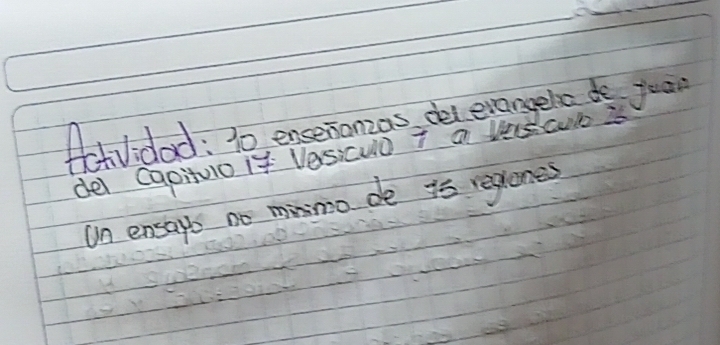 Actividad: 10 enseñanzas del evangelio de juan
del capitulo 17 Vesiculo 7 a versiculo
Un ensayo no minimo de 15 reglones